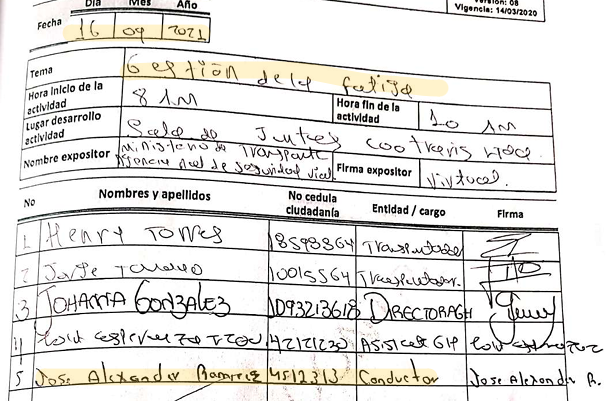 Versión: 08
Vigencia: 14/03/2020
Día Mes Año
Fecha 16 09 2021
Tema Gestión de la fatiga
Hora inicio de la actividad 8 AM Hora fin de la actividad 10 AM
Lugar desarrollo actividad Sala de Juntas cootravis Ltda.
Nombre expositor Ministerio de Transporte Agencia Nal de seguridad vial Firma expositor Virtual.
No Nombres y apellidos No cedula ciudadanía Entidad / cargo Firma
1 Henry Torres 18598864 Transportador
2 10015564 Transportador.
3 Johanna Gonzalez 1093213618 Directora GH
4 42121230 Asistente GH
5 Jose Alexander Ramirez 4512313 Conductor Jose Alexander R.